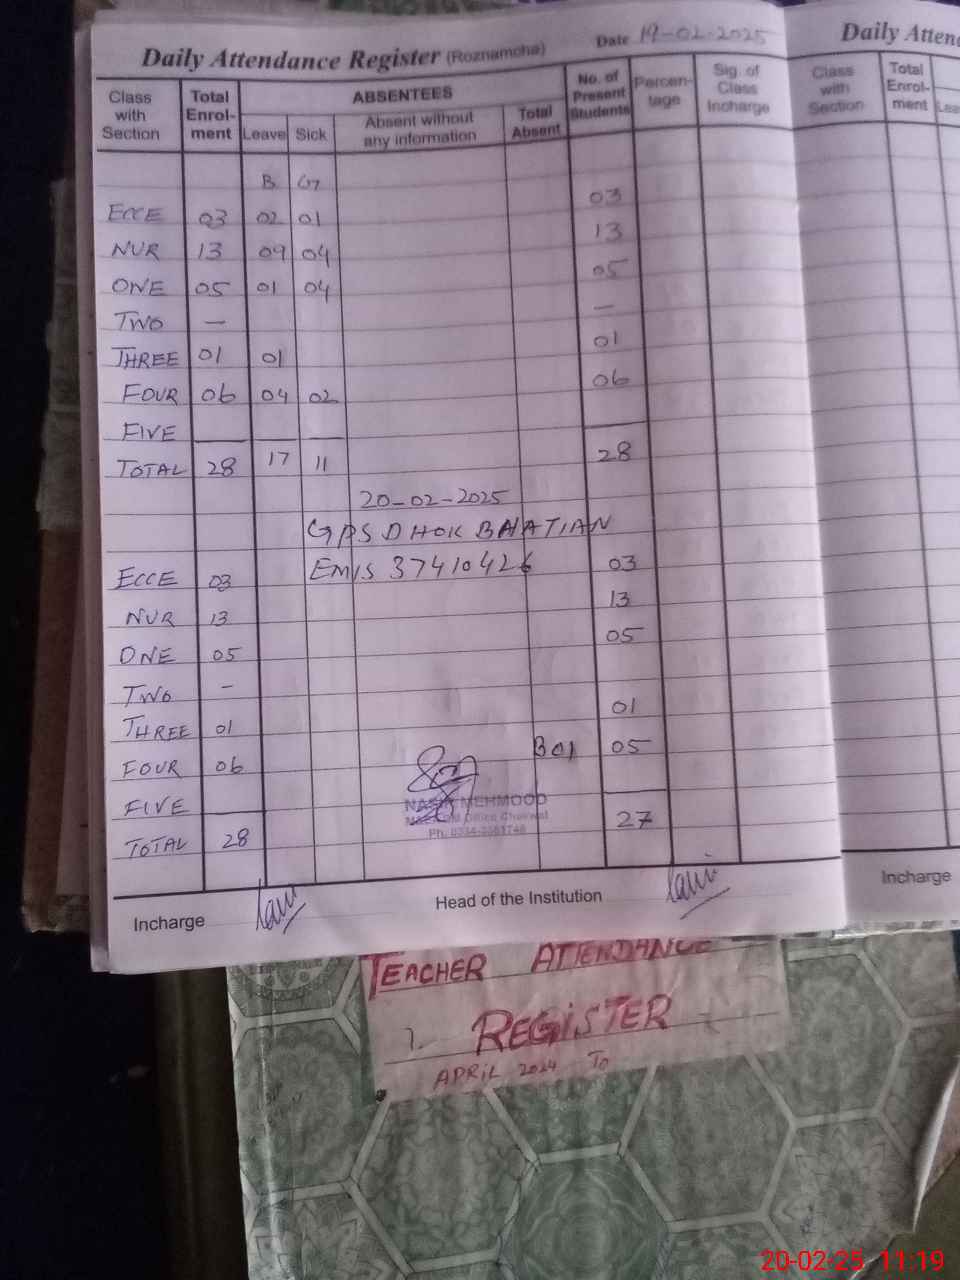 Daily Attendance Register (Roznamcha) Date 19-02-2025
Class with Section Total Enrol-ment ABSENTEES No. of Present Students Percen-tage Sig. of Class Incharge
Leave Sick Absent without any information Total Absent
B G
ECCE 03 02 01 03
NUR 13 09 04 13
ONE 05 01 04 05
TWO — —
THREE 01 01 01
FOUR 06 04 02 06
FIVE
TOTAL 28 17 11 28
20-02-2025
GPS DHOK BHATIAN
EMIS 37410426
ECCE 03 03
NUR 13 13
ONE 05 05
TWO -
THREE 01 01
FOUR 06 B 01 05
FIVE
TOTAL 28 27
NASIR MEHMOOD
Office Chakwal
Ph:
Incharge Head of the Institution
Daily Atten
Class with Section Total Enrol-ment Lea
Incharge
TEACHER ATTENDANCE
REGISTER
APRIL 2024 To
20-02-25 11:19